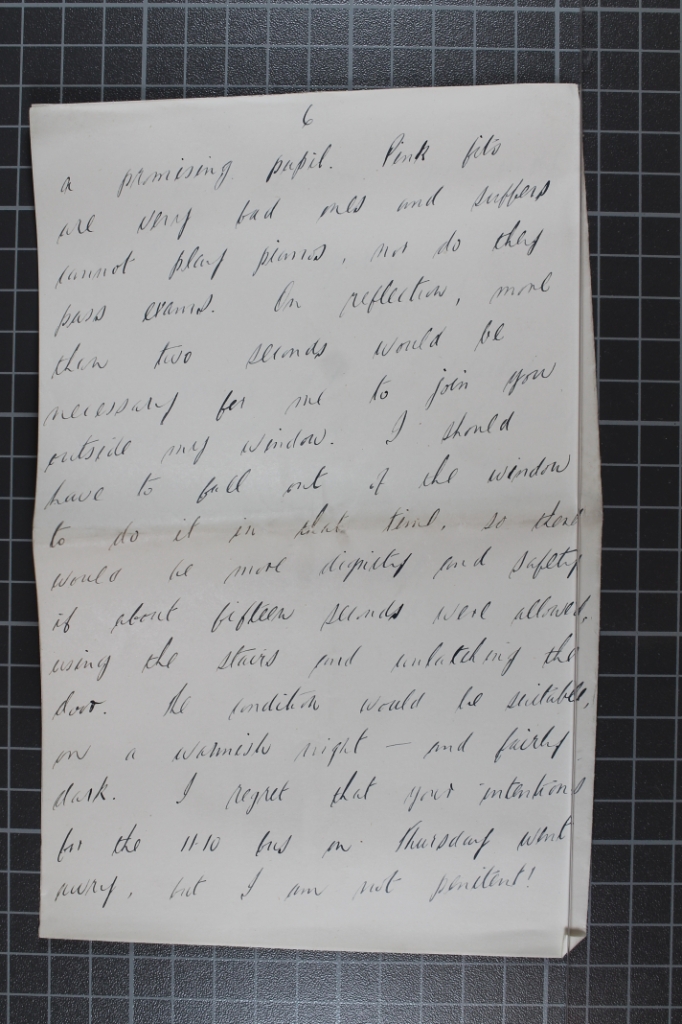 6
a promising pupil. Pink fits
are very bad ones and suffers
cannot play pianos, nor do they
pass exams. On reflection, more
than two seconds would be
necessary for me to join you
outside my window. I should
have to fall out of the window
to do it in that time, so there
would be more dignity and safety
if about fifteen seconds were allowed,
using the stairs and unlatching the
door. The condition would be suitable,
on a warmish night — and fairly
dark. I regret that your intentions
for the 11-10 bus on Thursday went
awry, but I am not penitent!